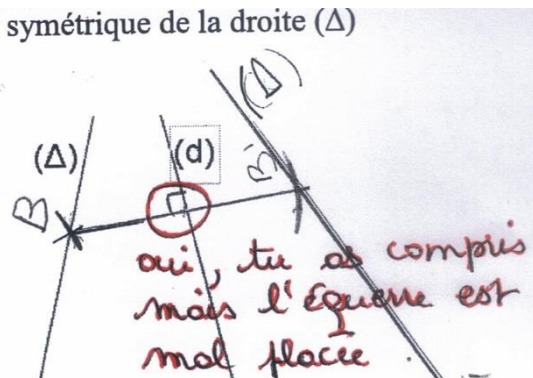 symétrique de la droite (Δ)
(Δ)
(Δ)
(d)
B
B'
oui, tu as compris
mais l'équerre est
mal placée